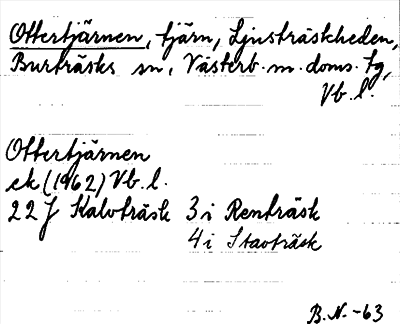 Ottertjärnen, tjärn, Ljusträskheden,
Burträsks sn, Västerb. m. doms. tg,
Vb. l.
Ottertjärnen
ek (1962) Vb. l.
22 J Kalvträsk 3 i Renträsk
4 i Stavträsk
B.N. -63